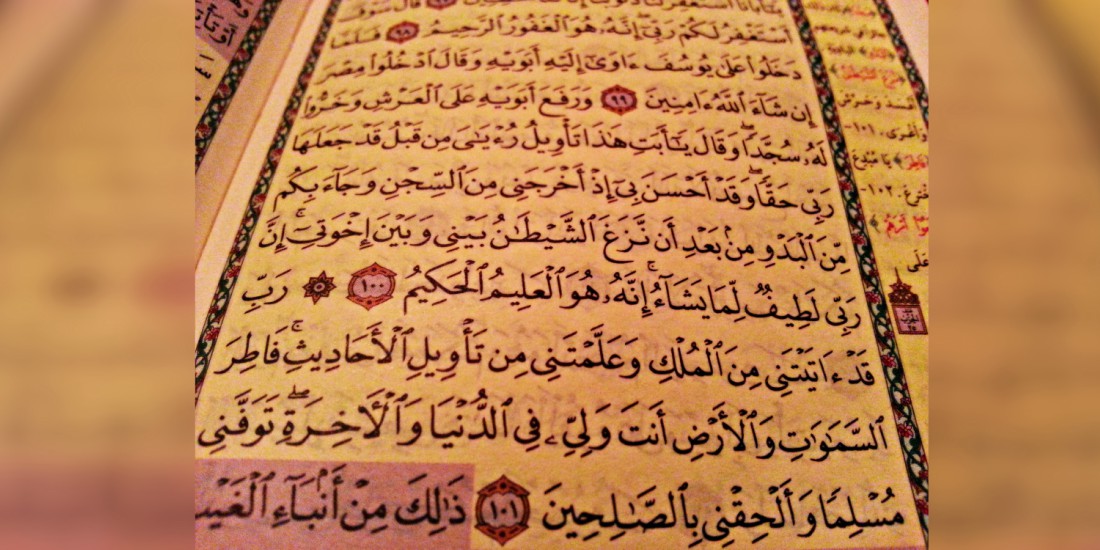 أَسْتَغْفِرُ لَكُمْ رَبِّىٓ إِنَّهُۥ هُوَ ٱلْغَفُورُ ٱلرَّحِيمُ ٩٨ فَلَمَّا
دَخَلُوا۟ عَلَىٰ يُوسُفَ ءَاوَىٰٓ إِلَيْهِ أَبَوَيْهِ وَقَالَ ٱدْخُلُوا۟ مِصْرَ
إِن شَآءَ ٱللَّهُ ءَامِنِينَ ٩٩ وَرَفَعَ أَبَوَيْهِ عَلَى ٱلْعَرْشِ وَخَرُّوا۟
لَهُۥ سُجَّدًا ۖ وَقَالَ يَـٰٓأَبَتِ هَـٰذَا تَأْوِيلُ رُءْيَـٰىَ مِن قَبْلُ قَدْ جَعَلَهَا
رَبِّى حَقًّا ۖ وَقَدْ أَحْسَنَ بِىٓ إِذْ أَخْرَجَنِى مِنَ ٱلسِّجْنِ وَجَآءَ بِكُم
مِّنَ ٱلْبَدْوِ مِنۢ بَعْدِ أَن نَّزَغَ ٱلشَّيْطَـٰنُ بَيْنِى وَبَيْنَ إِخْوَتِىٓ ۚ إِنَّ
رَبِّى لَطِيفٌ لِّمَا يَشَآءُ ۚ إِنَّهُۥ هُوَ ٱلْعَلِيمُ ٱلْحَكِيمُ ١٠٠ رَبِّ
قَدْ ءَاتَيْتَنِى مِنَ ٱلْمُلْكِ وَعَلَّمْتَنِى مِن تَأْوِيلِ ٱلْأَحَادِيثِ ۚ فَاطِرَ
ٱلسَّمَـٰوَٰتِ وَٱلْأَرْضِ أَنتَ وَلِىِّۦ فِى ٱلدُّنْيَا وَٱلْـَٔاخِرَةِ ۖ تَوَفَّنِى
مُسْلِمًا وَأَلْحِقْنِى بِٱلصَّـٰلِحِينَ ١٠١ ذَٰلِكَ مِنْ أَنۢبَآءِ ٱلْغَيْبِ